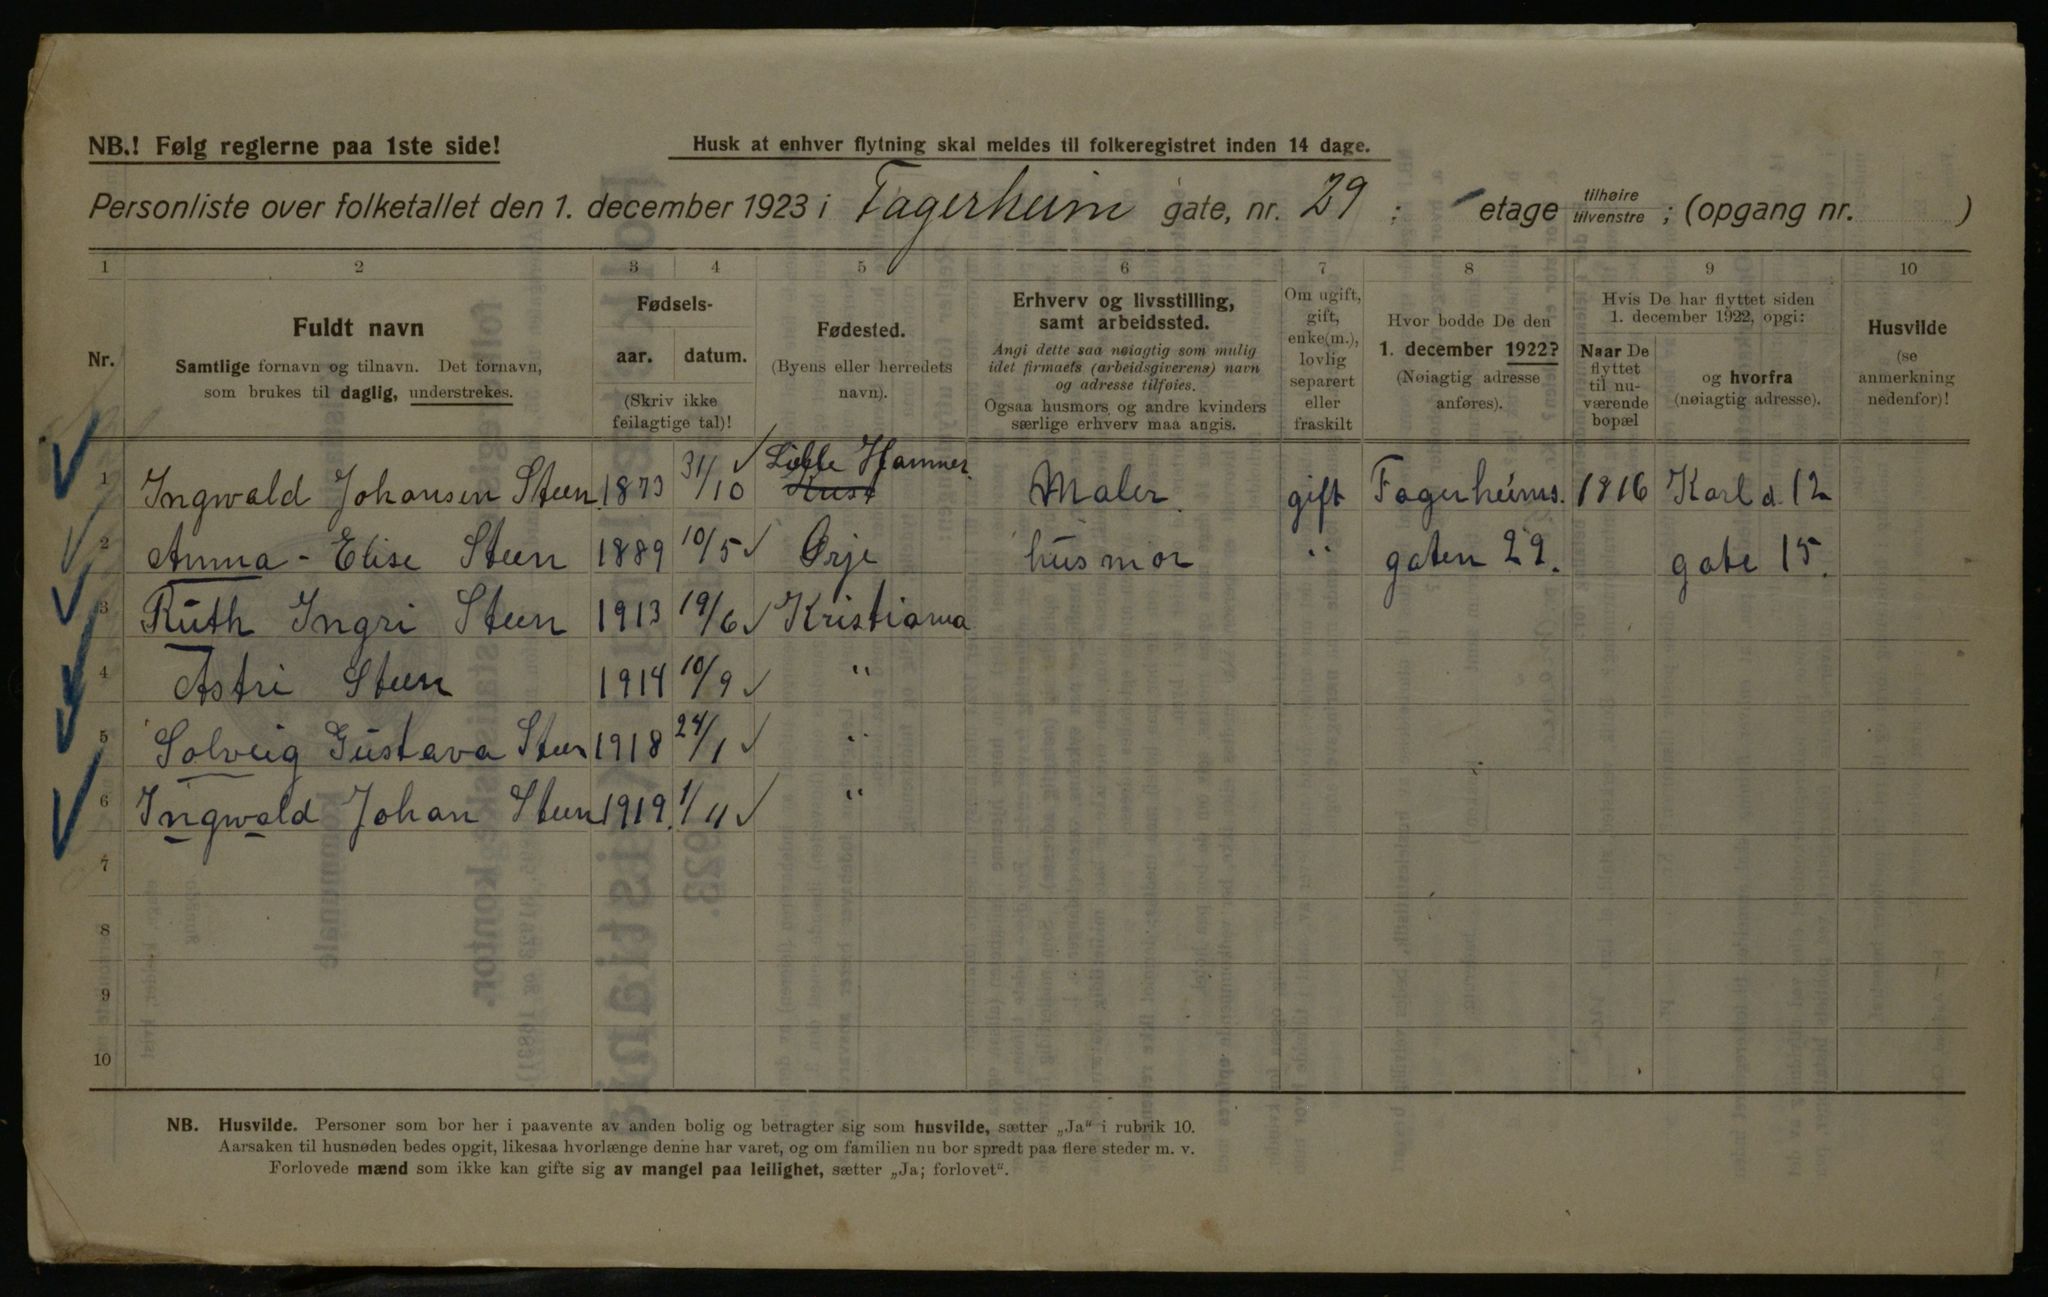 NB.! Følg reglerne paa 1ste side!
Husk at enhver flytning skal meldes til folkeregistret inden 14 dage.
Personliste over folketallet den 1. december 1923 i Fagerheim gate, nr. 29 ; etage tilhøire tilvenstre ; (opgang nr. )
1 2 3 4 5 6 7 8 9 10
Nr.
Fuldt navn
Samtlige fornavn og tilnavn. Det fornavn,
som brukes til daglig, understrekes.
Fødsels-
aar. datum.
(Skriv ikke
feilagtige tal)!
Fødested.
(Byens eller herredets
navn).
Erhverv og livsstilling,
samt arbeidssted.
Angi dette saa nøiagtig som mulig
idet firmaets (arbeidsgiverens) navn
og adresse tilføies.
Ogsaa husmors og andre kvinders
særlige erhverv maa angis.
Om ugift,
gift,
enke(m.),
lovlig
separert
eller
fraskilt
Hvor bodde De den
1. december 1922?
(Nøiagtig adresse
anføres).
Hvis De har flyttet siden
1. december 1922, opgi:
Naar De
flyttet
til nu-
værende
bopæl
og hvorfra
(nøiagtig adresse).
Husvilde
(se
anmerkning
nedenfor)!
1 Ingwald Johansen Steen 1873 31/10 Lille Hammer Maler gift Fagerheims. 1916 Karl d. 12
2 Anna - Elise Steen 1889 10/5 Ørje husmor " gaten 29. gate 15.
3 Ruth Ingri Steen 1913 19/6 Kristiania
4 Astri Steen 1914 10/9 "
5 Solveig Gustava Steen 1918 24/1 "
6 Ingwald Johan Steen 1919. 1/11 "
7
8
9
10
NB. Husvilde. Personer som bor her i paavente av anden bolig og betragter sig som husvilde, sætter „Ja“ i rubrik 10.
Aarsaken til husnøden bedes opgit, likesaa hvorlænge denne har varet, og om familien nu bor spredt paa flere steder m. v.
Forlovede mænd som ikke kan gifte sig av mangel paa leilighet, sætter „Ja; forlovet“.